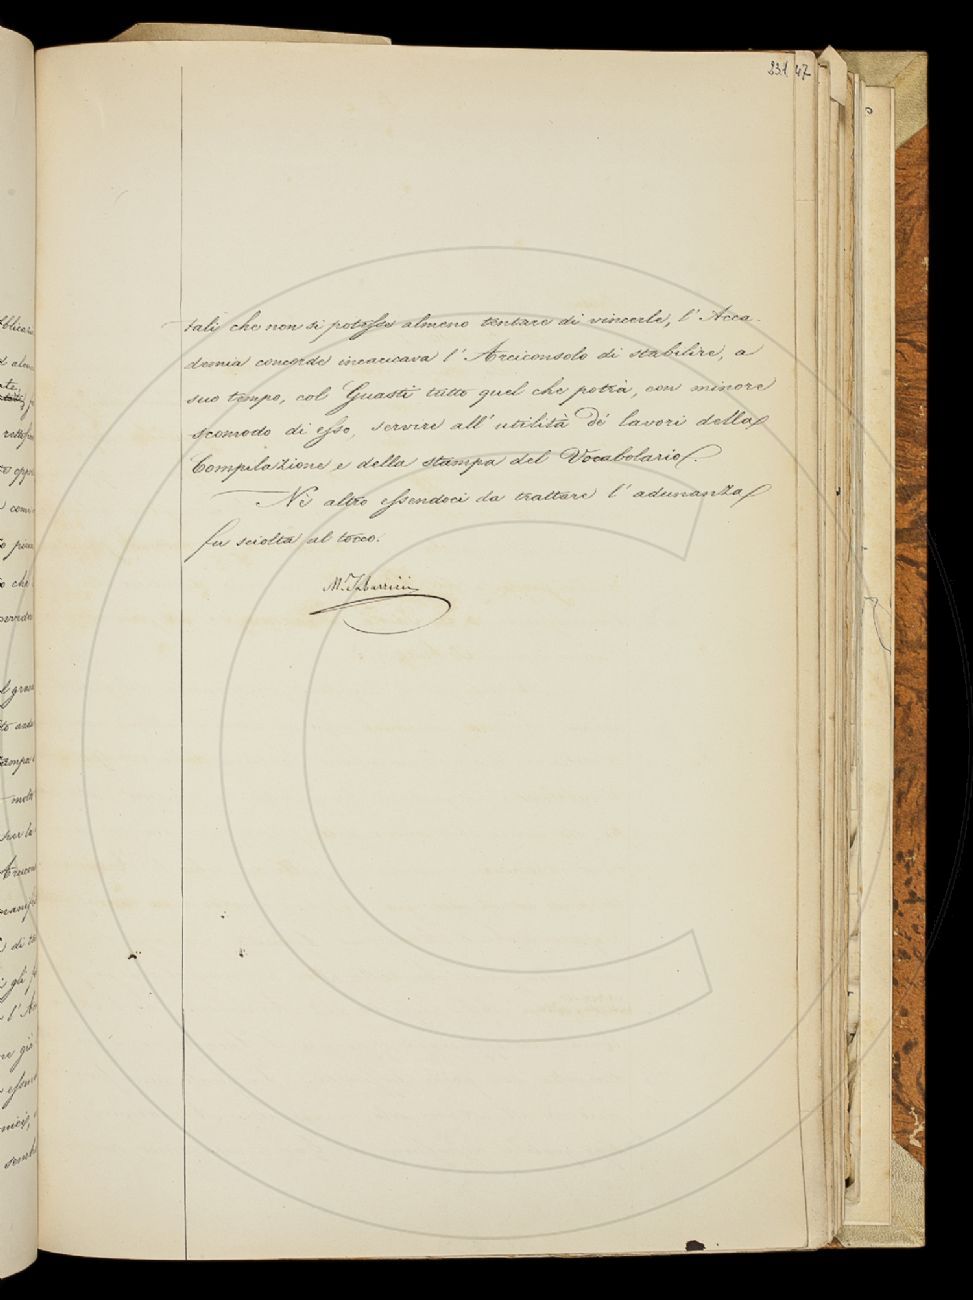 231 47
tali che non si potesse almeno tentare di vincerle, l'Acca-
demia concorde incaricava l'Arciconsolo di stabilire, a
suo tempo, col Guasti tutto quel che potrà, con minore
scomodo di esso, servire all'utilità de' lavori della
Compilazione e della stampa del Vocabolario.
Nè altro essendoci da trattare l'adunanza
fu sciolta al tocco.
M. Tabarrini